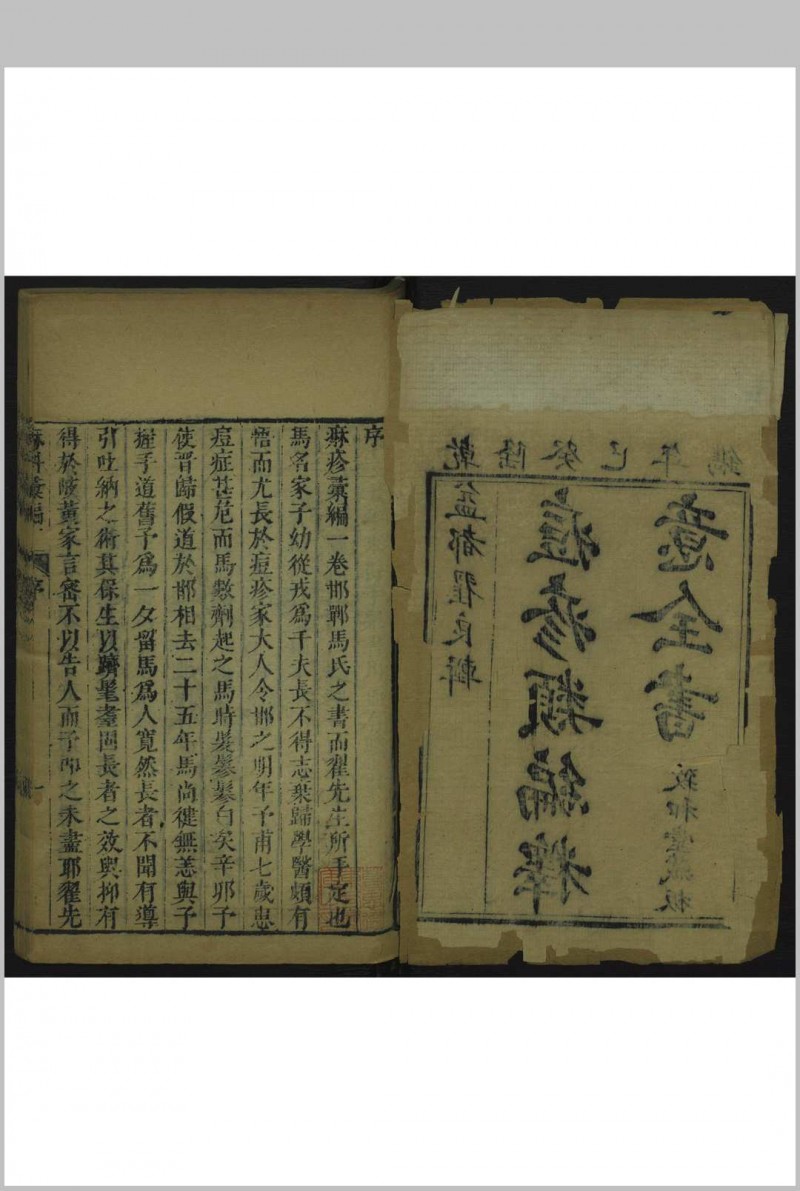 乾隆癸巳年鐫
益都翟良輯
痘疹類編釋
意全書
致和堂藏板
序
痳疹彙編一卷邯鄲馬氏之書而翟先生所手定也
馬名家子幼從戎爲千夫長不得志棄歸學醫頗有
悟而尤長於痘疹家大人令邯之明年予甫七歲患
痘症甚危而馬數劑起之馬時髮鬖鬖白矣辛卯予
使晋歸假道於邯相去二十五年馬尚健無恙與予
握手道舊予爲一夕留馬爲人寬然長者不聞有導
引吐納之術其保生以躋髦耋固長者之效與抑有
得於岐黃家言審不以告人而予叩之未盡耶翟先
麻科彙編 序 一